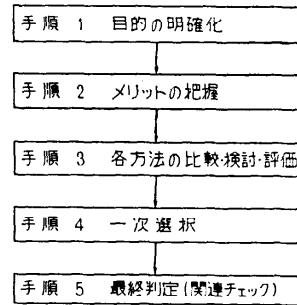 手順 1 目的の明確化
手順 2 メリットの把握
手順 3 各方法の比較・検討・評価
手順 4 一次選択
手順 5 最終判定(関連チェック)